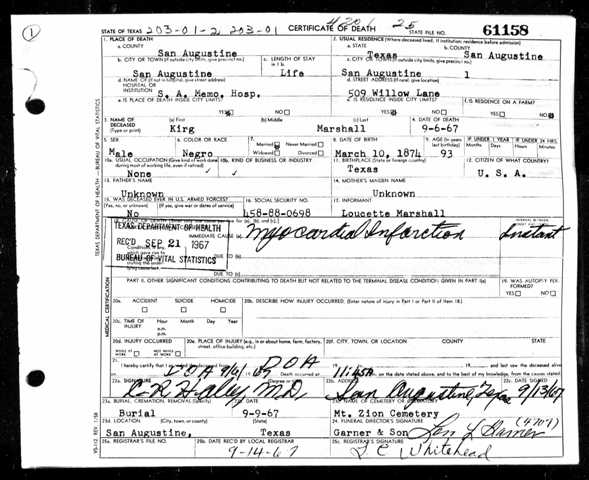 1
203-01-2, 203-01
25
STATE OF TEXAS
CERTIFICATE OF DEATH
STATE FILE NO.
61158
1. PLACE OF DEATH
a. COUNTY
San Augustine
2. USUAL RESIDENCE (Where deceased lived. If institution, residence before admission)
a. STATE
Texas
b. COUNTY
San Augustine
b. CITY OR TOWN (If outside city limits, give precinct no.)
San Augustine
c. LENGTH OF STAY
in 1 b.
Life
c. CITY OR TOWN (If outside city limits, give precinct no.)
San Augustine 1
d. NAME OF (If not in hospital, give street address)
HOSPITAL OR
INSTITUTION
S. A. Memo. Hosp.
d. STREET ADDRESS (If rural, give location)
509 Willow Lane
e. IS PLACE OF DEATH INSIDE CITY LIMITS?
YES NO
e. IS RESIDENCE INSIDE CITY LIMITS?
YES NO
f. IS RESIDENCE ON A FARM?
YES NO
3. NAME OF
DECEASED
(Type or print)
(a) First
Kirg
(b) Middle
(c) Last
Marshall
4. DATE OF DEATH
9-6-67
5. SEX
Male
6. COLOR OR RACE
Negro
7. Married Never Married
Widowed Divorced
8. DATE OF BIRTH
March 10, 1874
9. AGE (In years
last birthday)
93
IF UNDER 1 YEAR
IF UNDER 24 HRS.
10a. USUAL OCCUPATION (Give kind of work done
during most of working life, even if retired)
None
10b. KIND OF BUSINESS OR INDUSTRY
11. BIRTHPLACE (State or foreign country)
Texas
12. CITIZEN OF WHAT COUNTRY?
U. S. A.
13. FATHER'S NAME
Unknown
14. MOTHER'S MAIDEN NAME
Unknown
15. WAS DECEASED EVER IN U.S. ARMED FORCES?
(Yes, no, or unknown) (If yes, give war or dates of service)
No
16. SOCIAL SECURITY NO.
458-88-0698
17. INFORMANT
Loucette Marshall
TEXAS DEPARTMENT OF HEALTH
REC'D SEP 21 1967
BUREAU OF VITAL STATISTICS
IMMEDIATE CAUSE (a)
Myocardial Infarction
Instant
DUE TO (b)
DUE TO (c)
PART II. OTHER SIGNIFICANT CONDITIONS CONTRIBUTING TO DEATH BUT NOT RELATED TO THE TERMINAL DISEASE CONDITION GIVEN IN PART I(a)
19. WAS AUTOPSY PERFORMED?
YES NO
20a. ACCIDENT SUICIDE HOMICIDE
20b. DESCRIBE HOW INJURY OCCURRED. (Enter nature of injury in Part I or Part II of item 18.)
20c. TIME OF
INJURY
Hour Month Day Year
a.m.
p.m.
20d. INJURY OCCURRED
WHILE AT
WORK
NOT WHILE
AT WORK
20e. PLACE OF INJURY (e.g., in or about home, farm, factory,
street, office building, etc.)
20f. CITY, TOWN, OR LOCATION
COUNTY
STATE
21. I hereby certify that I attended the deceased from
DOA
and last saw the deceased alive
DOA 9/6/67
Death occurred at 11:45A m. on the date stated above, and to the best of my knowledge, from the causes stated
22a. SIGNATURE
(Degree or title)
C. R. Haley M.D.
22b. ADDRESS
San Augustine, Texas
22c. DATE SIGNED
9/13/67
23a. BURIAL, CREMATION, REMOVAL (Specify)
Burial
23b. DATE
9-9-67
23c. NAME OF CEMETERY OR CREMATORY
Mt. Zion Cemetery
23d. LOCATION (City, town, or county) (State)
San Augustine, Texas
24. FUNERAL DIRECTOR'S SIGNATURE
Garner & Son
(4701)
25a. REGISTRAR'S FILE NO.
25b. DATE REC'D BY LOCAL REGISTRAR
9-14-67
25c. REGISTRAR'S SIGNATURE
Whitehead
TEXAS DEPARTMENT OF HEALTH — BUREAU OF VITAL STATISTICS
MEDICAL CERTIFICATION
VS-112 REV. 1/58